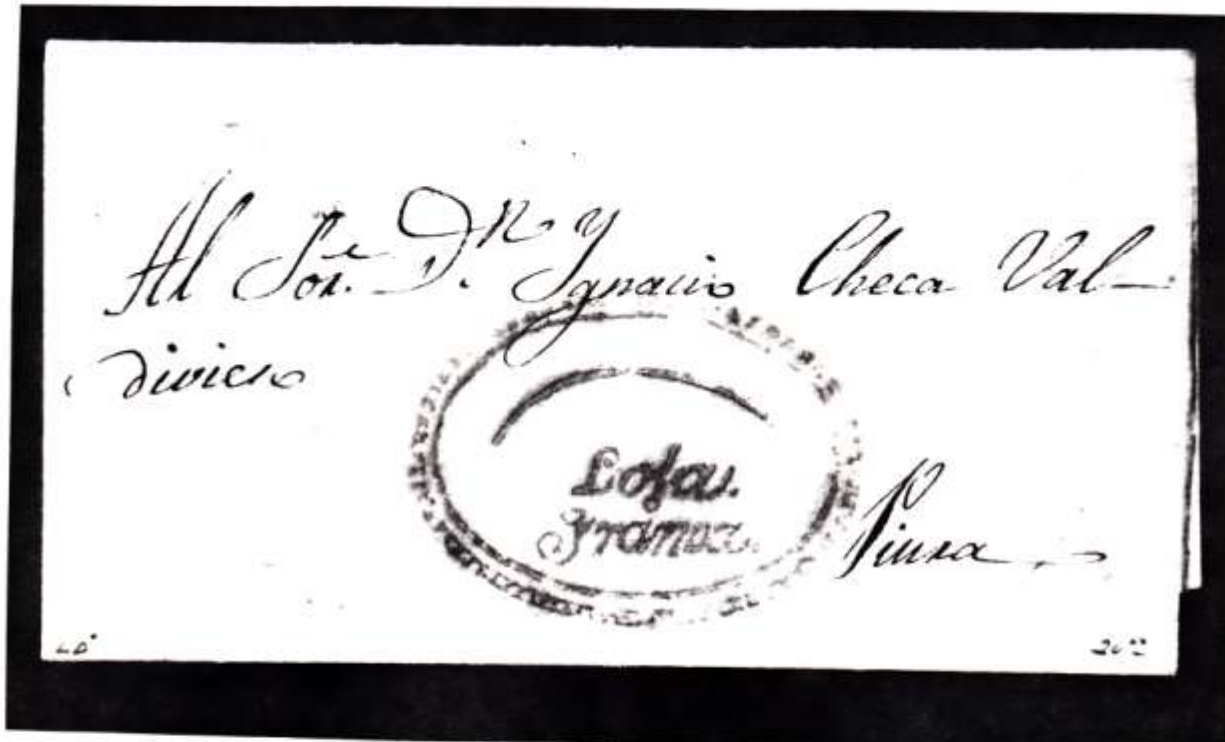 Al Sor. Dn. Ygnacio Checa Val-
divieso
Loja.
Franca.
Piura